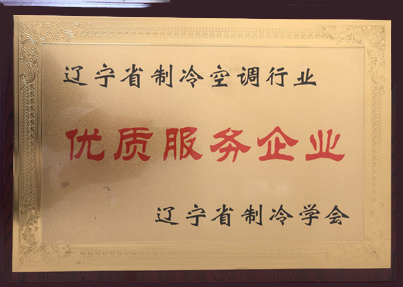 辽宁省制冷空调行业
优质服务企业
辽宁省制冷学会